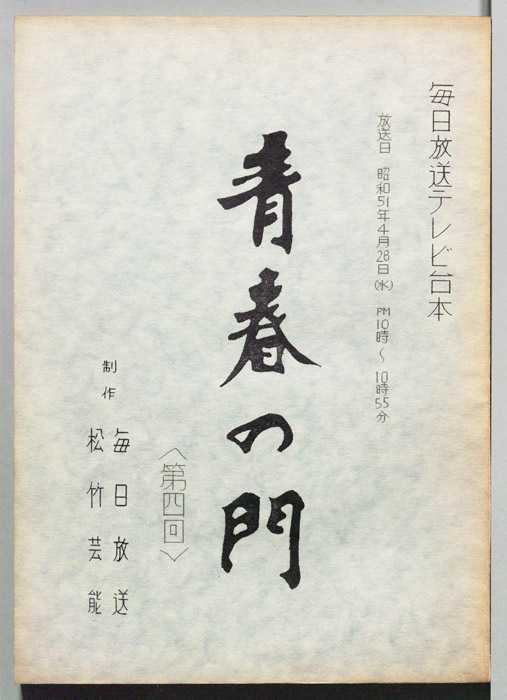 毎日放送テレビ台本
放送日 昭和51年4月28日(水) PM10時〜10時55分
青春の門
〈第四回〉
制作
毎日放送
松竹芸能